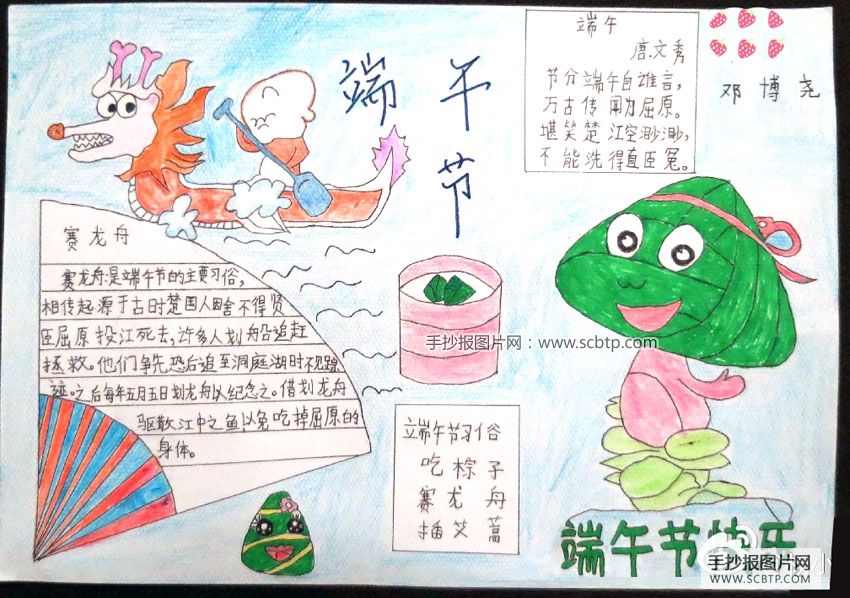 端午节
端午
唐.文秀
节分端午自谁言,
万古传闻为屈原。
堪笑楚江空渺渺,
不能洗得直臣冤。
邓博尧
赛龙舟
赛龙舟是端午节的主要习俗,
相传起源于古时楚国人因舍不得贤
臣屈原投江死去,许多人划船追赶
拯救。他们争先恐后追至洞庭湖时不见踪
迹。之后每年五月五日划龙舟以纪念之。借划龙舟
驱散江中之鱼以免吃掉屈原的
身体。
手抄报图片网:www.scbtp.com
端午节习俗
吃粽子
赛龙舟
插艾蒿
端午节快乐
手抄报图片网
WWW.SCBTP.COM